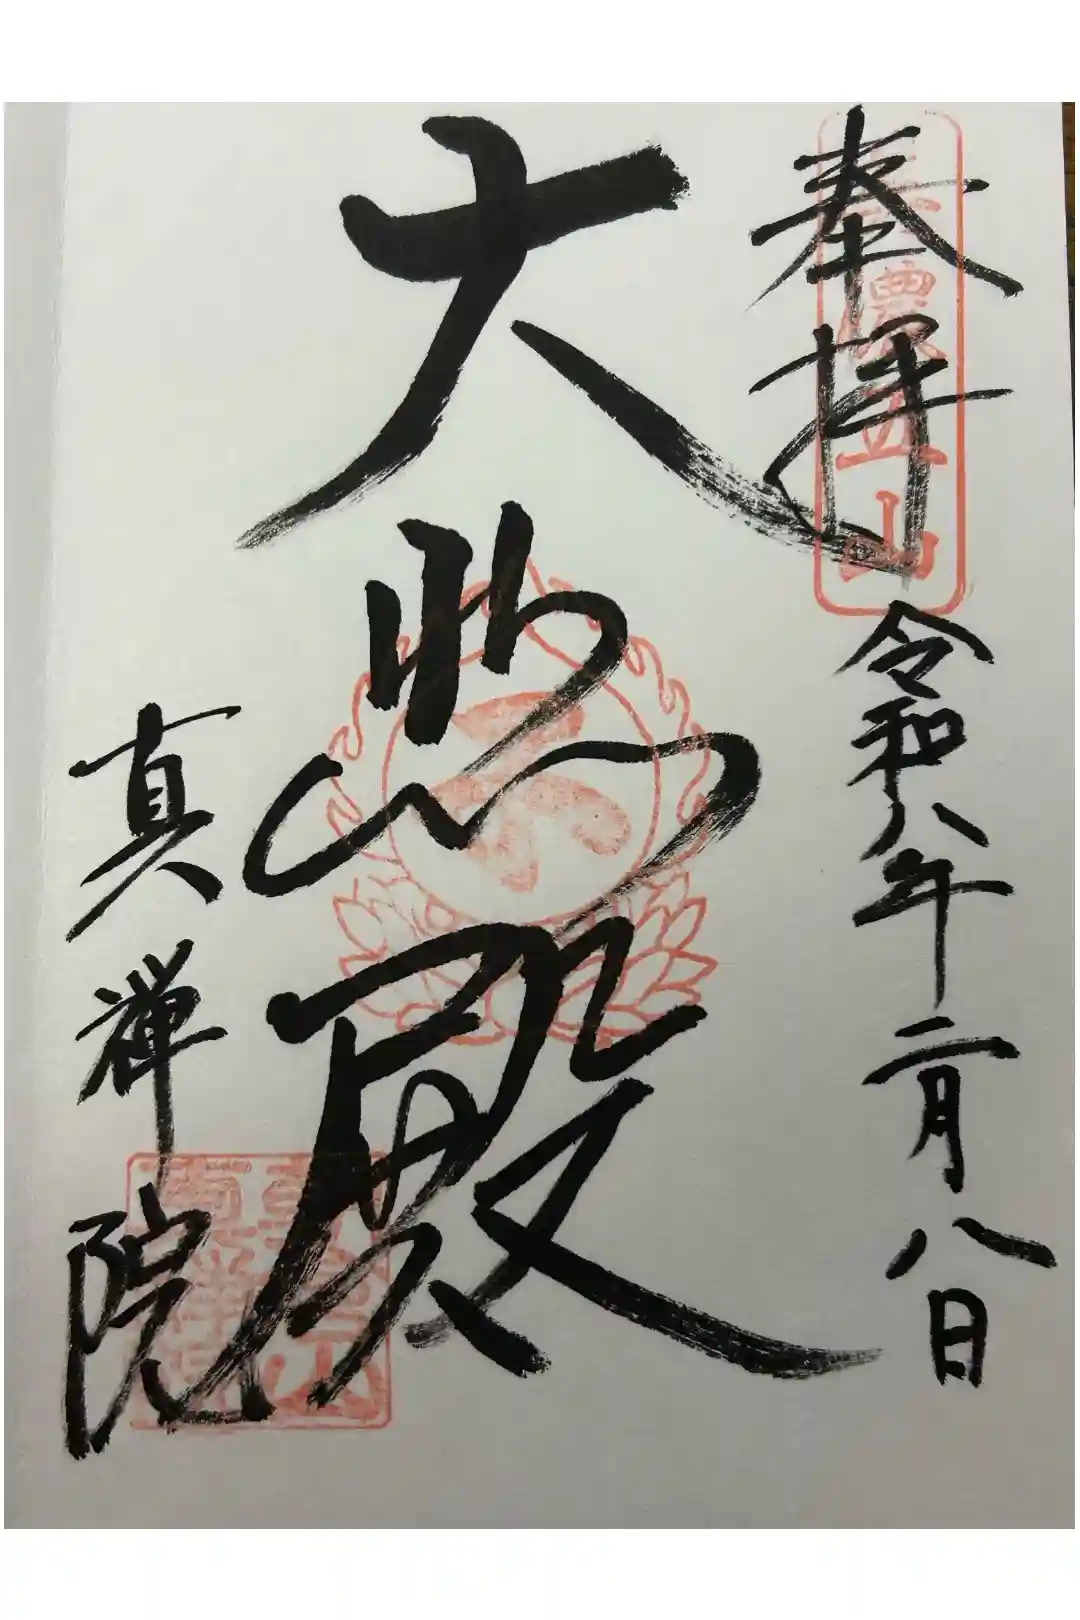 奉拝
令和八年二月八日
大悲殿
真禅院